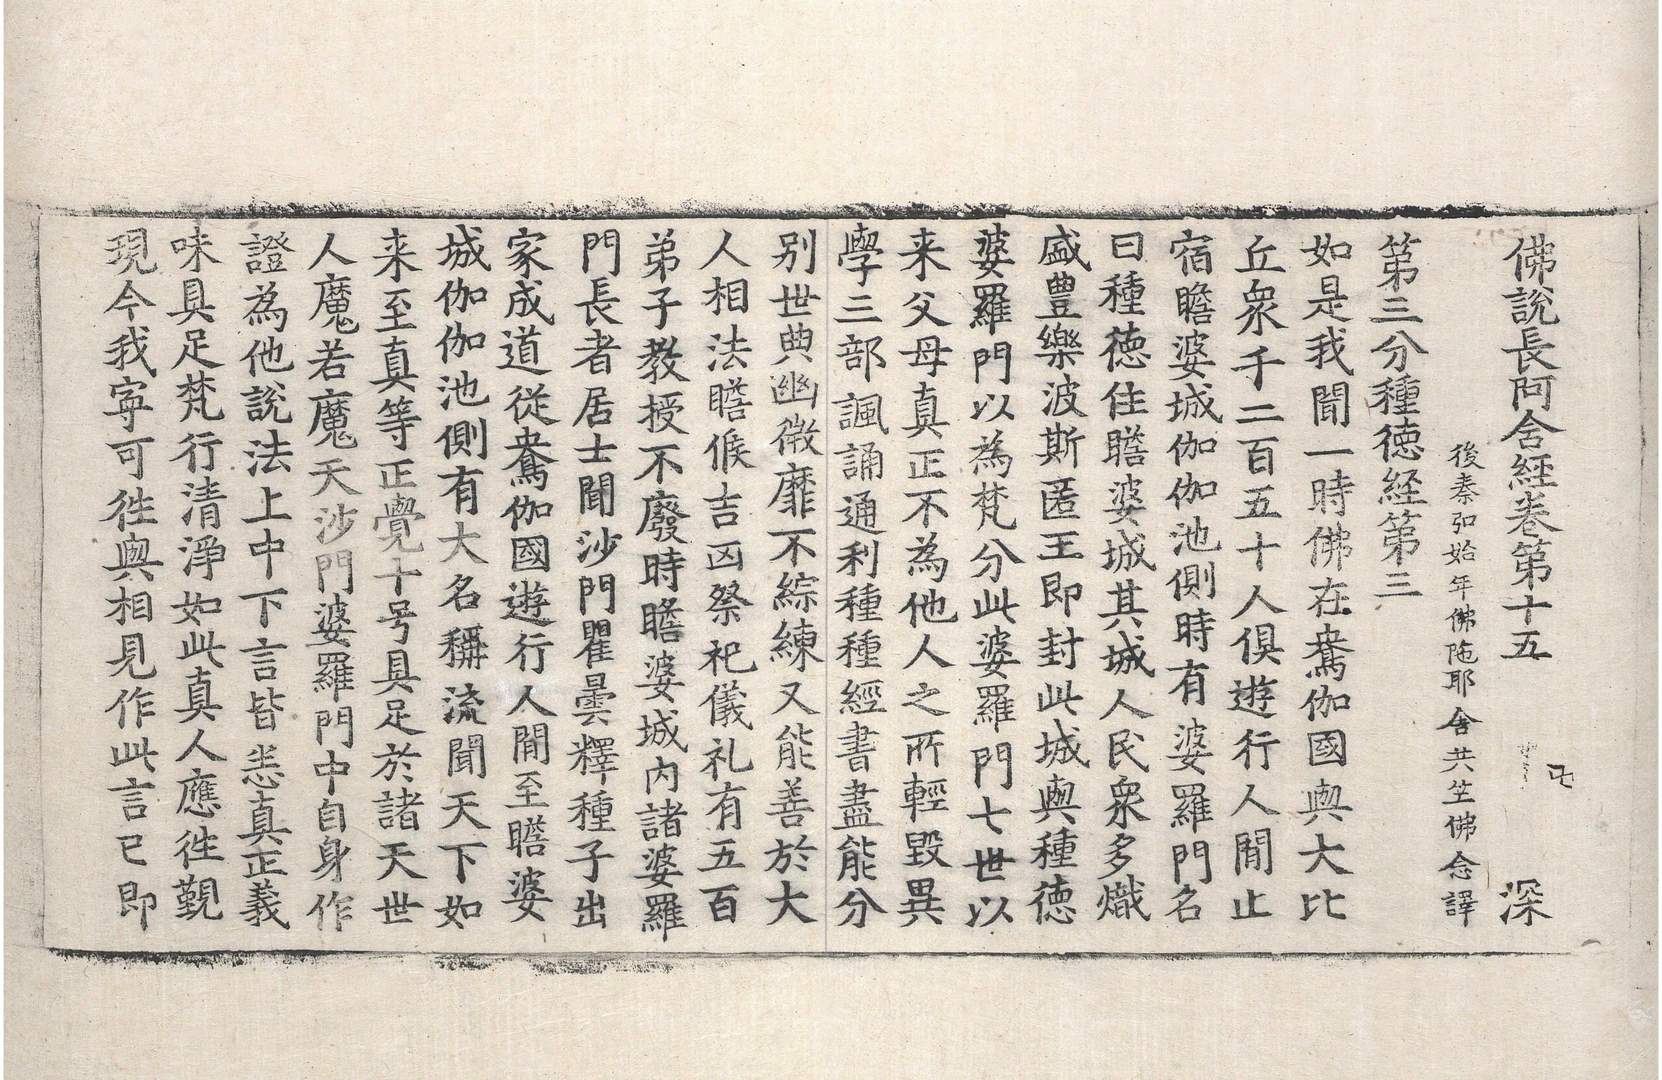 佛說長阿含經卷第十五　深
後秦弘始年佛陁耶舍共竺佛念譯
第三分種徳経第三
如是我聞一時佛在鴦伽國與大比
丘衆千二百五十人俱遊行人間止
宿瞻婆城伽伽池側時有婆羅門名
曰種徳住瞻婆城其城人民衆多熾
盛豊樂波斯匿王即封此城與種徳
婆羅門以為梵分此婆羅門七世以
来父母真正不為他人之所輕毀異
學三部諷誦通利種種經書盡能分
別世典幽微靡不綜練又能善於大
人相法瞻候吉凶祭祀儀礼有五百
弟子教授不廢時瞻婆城内諸婆羅
門長者居士聞沙門瞿曇釋種子出
家成道從鴦伽國遊行人間至瞻婆
城伽伽池側有大名稱流聞天下如
来至真等正覺十号具足於諸天世
人魔若魔天沙門婆羅門中自身作
證為他說法上中下言皆悉真正義
味具足梵行清淨如此真人應徃覲
現今我寜可徃與相見作此言已即